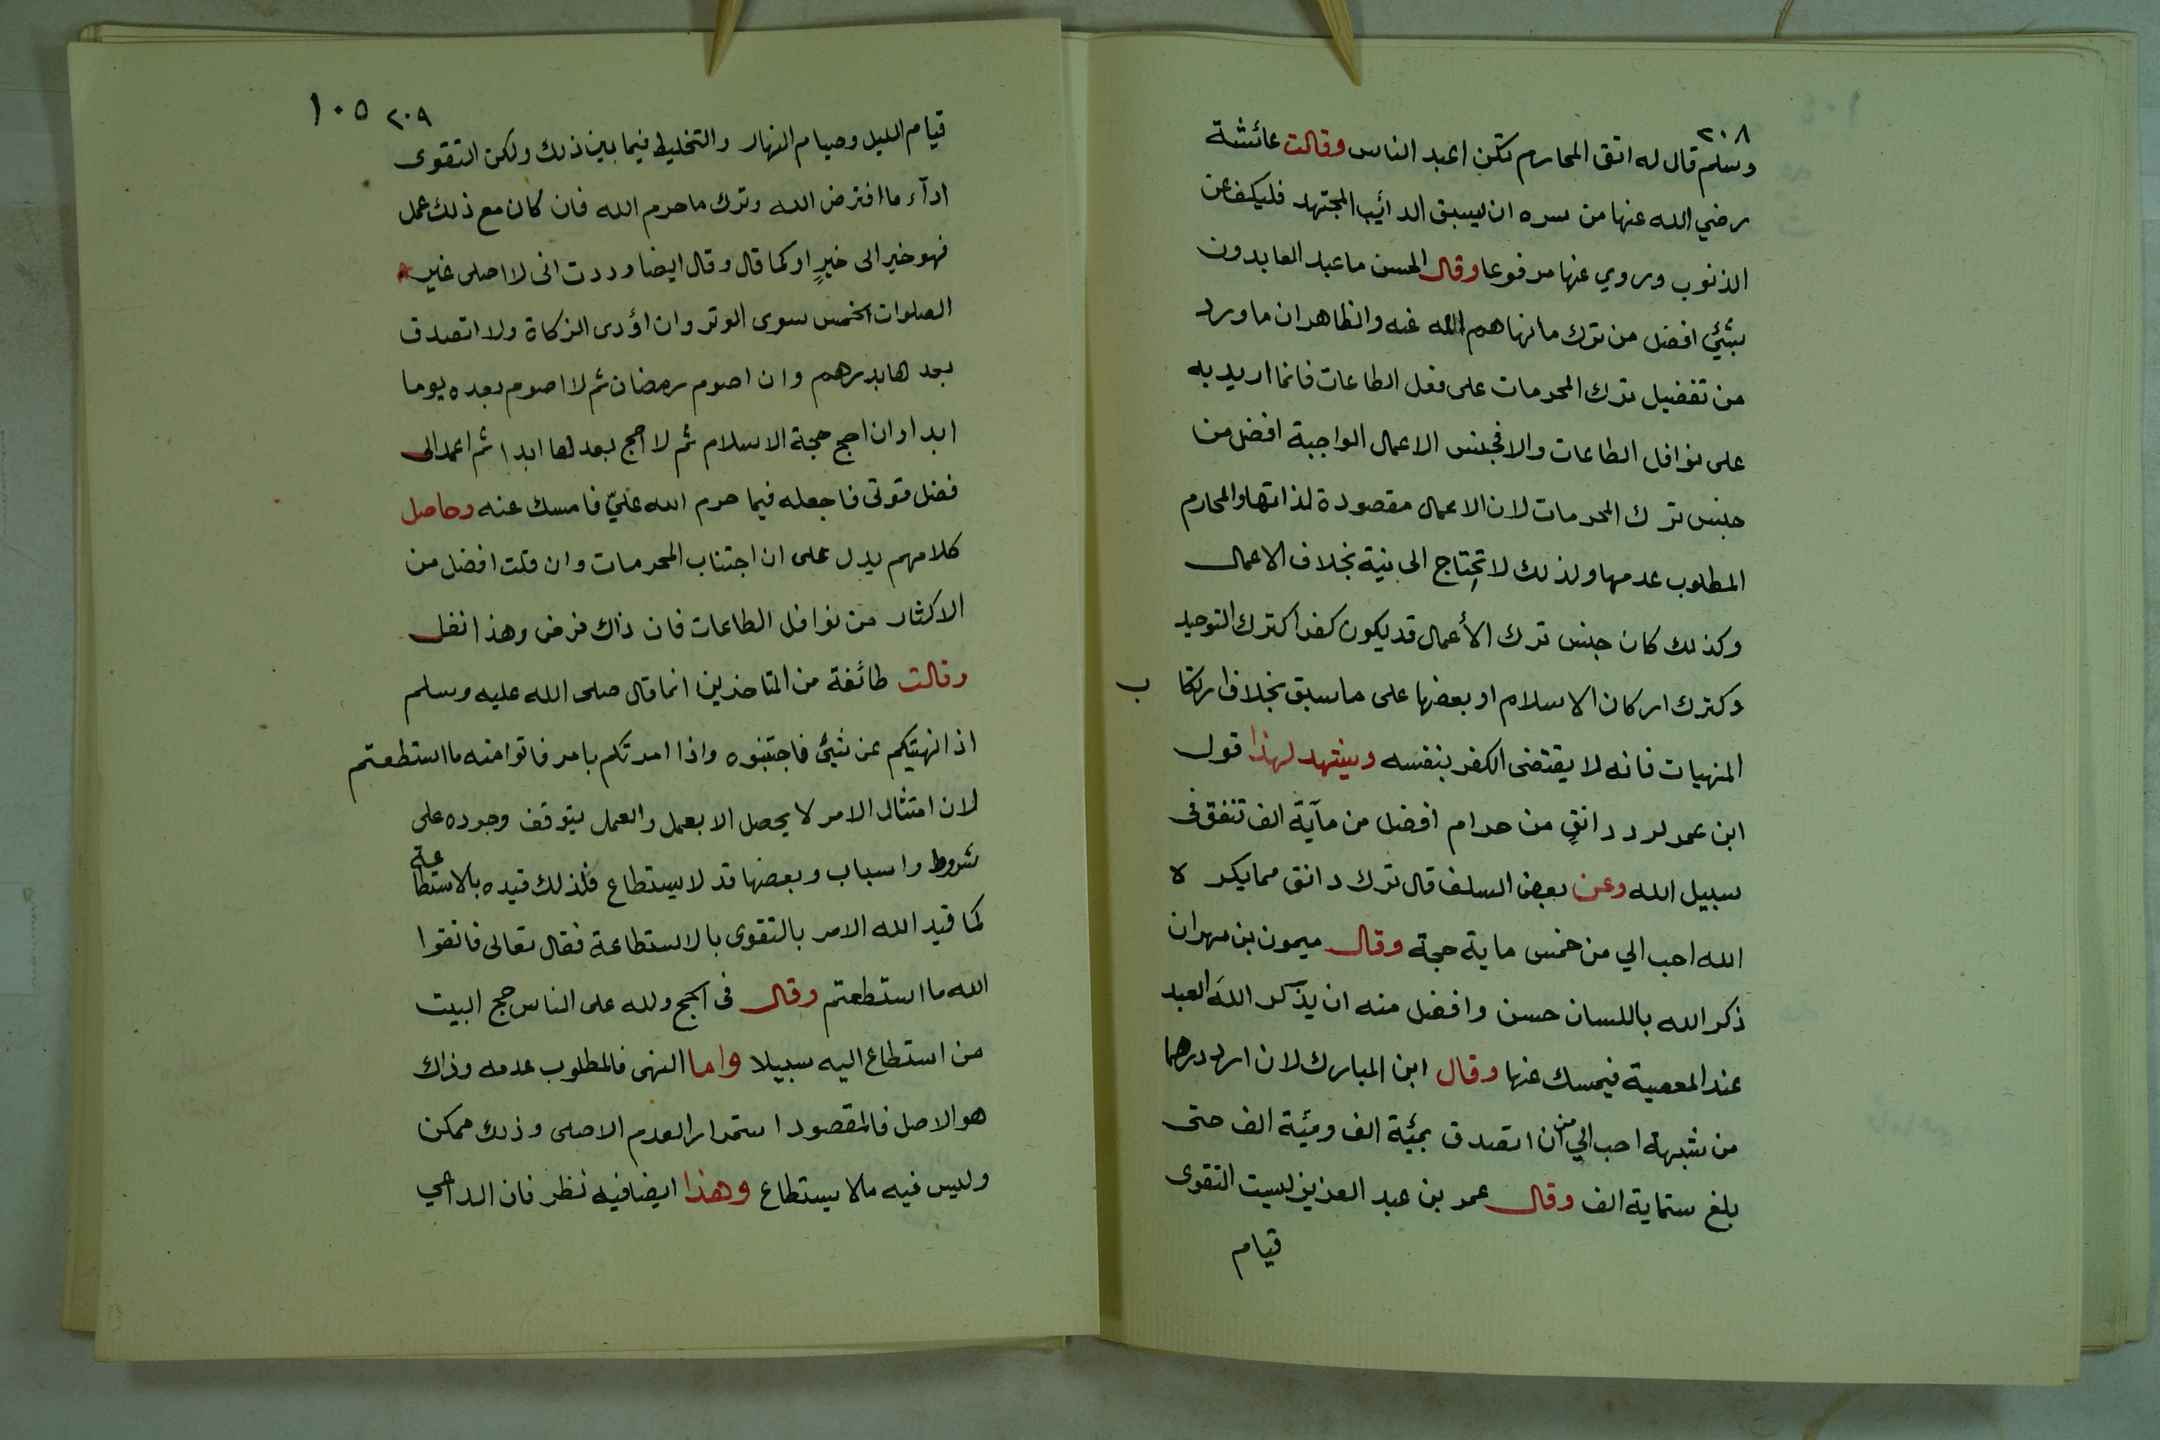 ٢٠٨
وسلم قال له اتق المحارم تكن اعبد الناس وقالت عائشة
رضي الله عنها من سره ان يسبق الدائب المجتهد فليكف عن
الذنوب وروي عنها مرفوعا وقال الحسن ماعبد العابدون
بشئ افضل من ترك مانهاهم الله عنه والظاهر ان ماورد
من تفضيل ترك المحرمات على فعل الطاعات فانما اريد به
على نوافل الطاعات والا فجنس الاعمال الواجبة افضل من
جنس ترك المحرمات لان الاعمال مقصودة لذاتها والمحارم
المطلوب عدمها ولذلك لا تحتاج الى نية بخلاف الاعمال
وكذلك كان جنس ترك الأعمال قد يكون كفرا كترك التوحيد
وكترك اركان الاسلام او بعضها على ماسبق بخلاف ارتكا ب
المنهيات فانه لا يقتضى الكفر بنفسه ويشهد لهذا قول
ابن عمر لرد دانقٍ من حرام افضل من مآية الف تنفق فى
سبيل الله وعن بعض السلف قال ترك دانق مما يكره
الله احب الي من خمس ماية حجة وقال ميمون بن مهران
ذكر الله باللسان حسن وافضل منه ان يذكر اللهَ العبد
عند المعصية فيمسك عنها وقال ابن المبارك لان ارد درهما
من شبهة احب الي من ان اتصدق بمئة الف ومئة الف حتى
بلغ ستماية الف وقال عمر بن عبد العزيز ليست التقوى
قيام
٢٠٩ ١٠٥
قيام الليل وصيام النهار والتخليط فيما بين ذلك ولكن التقوى
ادآء ما افترض الله وترك ماحرم الله فان كان مع ذلك عمل
فهو خير الى خيرٍ او كما قال وقال ايضا وددت انى لا اصلى غير
الصلوات الخمس سوى الوتر وان اؤدى الزكاة ولا اتصدق
بعدها بدرهم وان اصوم رمضان ثم لا اصوم بعده يوما
ابدا وان احج حجة الاسلام ثم لا احج بعدها ابدا ثم اعمد الى
فضل قوتى فاجعله فيما حرم الله عليّ فامسك عنه وحاصل
كلامهم يدل على ان اجتناب المحرمات وان قلت افضل من
الاكثار من نوافل الطاعات فان ذاك فرض وهذا نفل
وقالت طائفة من المتاخرين انما قال صلى الله عليه وسلم
اذا نهيتكم عن شئ فاجتنبوه واذا امرتكم بامر فاتوا منه ما استطعتم
لان امتثال الامر لا يحصل الا بعمل والعمل يتوقف وجوده على
شروط واسباب وبعضها قد لا يستطاع فلذلك قيده بالاستطاعة
كما قيد الله الامر بالتقوى بالاستطاعة فقال تعالى فاتقوا
الله ما استطعتم وقال فى الحج ولله على الناس حج البيت
من استطاع اليه سبيلا واما النهى فالمطلوب عدمه وذاك
هو الاصل فالمقصود استمرار العدم الاصلى وذلك ممكن
وليس فيه مالا يستطاع وهذا ايضا فيه نظر فان الداعي